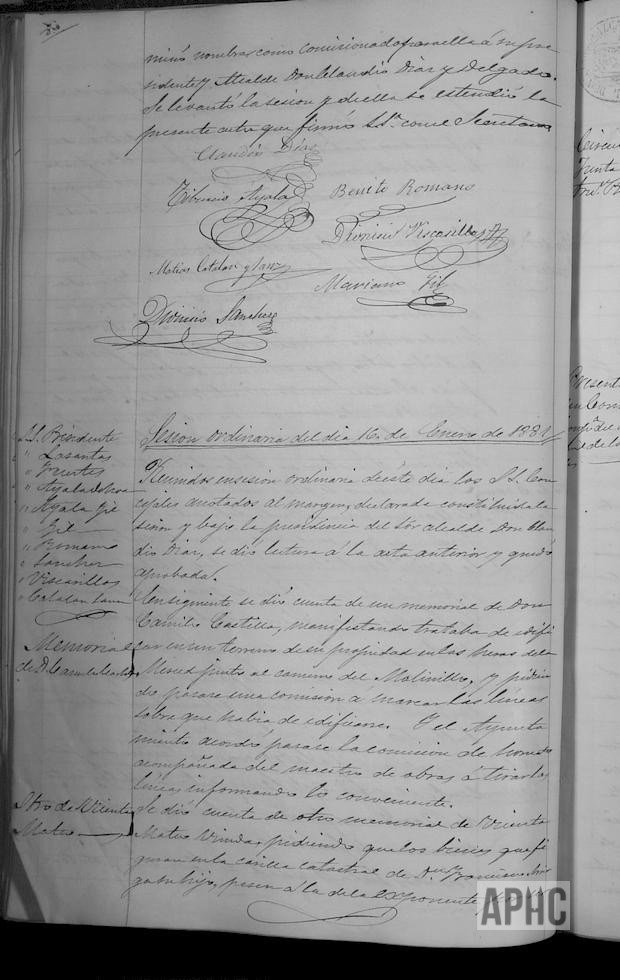 minó nombrar como comisionado para ella á su pre
sidente y Alcalde Don Claudio Diaz y Delgado.
Se levantó la sesion y de ella se estendió la
presente acta que firmó S.Sª con el Secretario
Claudio Diaz
Tiburcio Ayala Benito Romano
Dionisio Viscasillas
Matias Catalan y Sanz
Mariano Gil
Dionisio Sanchez
Sesion ordinaria del dia 16 de Enero de 1881
S. Presidente
" Losantos
" Fuentes
" Ayala
" Ayala Gil
" Gil
" Romano
" Sanchez
" Viscasillas
" Catalan Sanz
Reunidos en sesion ordinaria de este dia los S.S. Con
cejales anotados al margen, declarada constituida la
sesion y bajo la presidencia del Sór alcalde Don Clau
dio Diaz, se dió lectura á la acta anterior y quedó
aprobada.
Consiguiente, se dió cuenta de un memorial de Don
Camilo Castilla, manifestando trataba de edifi
car en un terreno de su propiedad en las heras de la
Memorial
de D. Camilo Castilla
Merced junto al camino del Molinillo, y pidien
do pasara una comision á marcar las líneas
sobre que habia de edificarse. Y el Ayunta
miento acordó pasase la comision de
acompañada del maestro de obras á tirar las
líneas informando lo conveniente.
Otro de Vicente
Mateo
Se dió cuenta de otro memorial de Vicente
Mateo Vinda, pidiendo que los bienes que fi
guran en la casilla catastral de Dn. Francisco
hijo, pasen á la del esponente
APHC